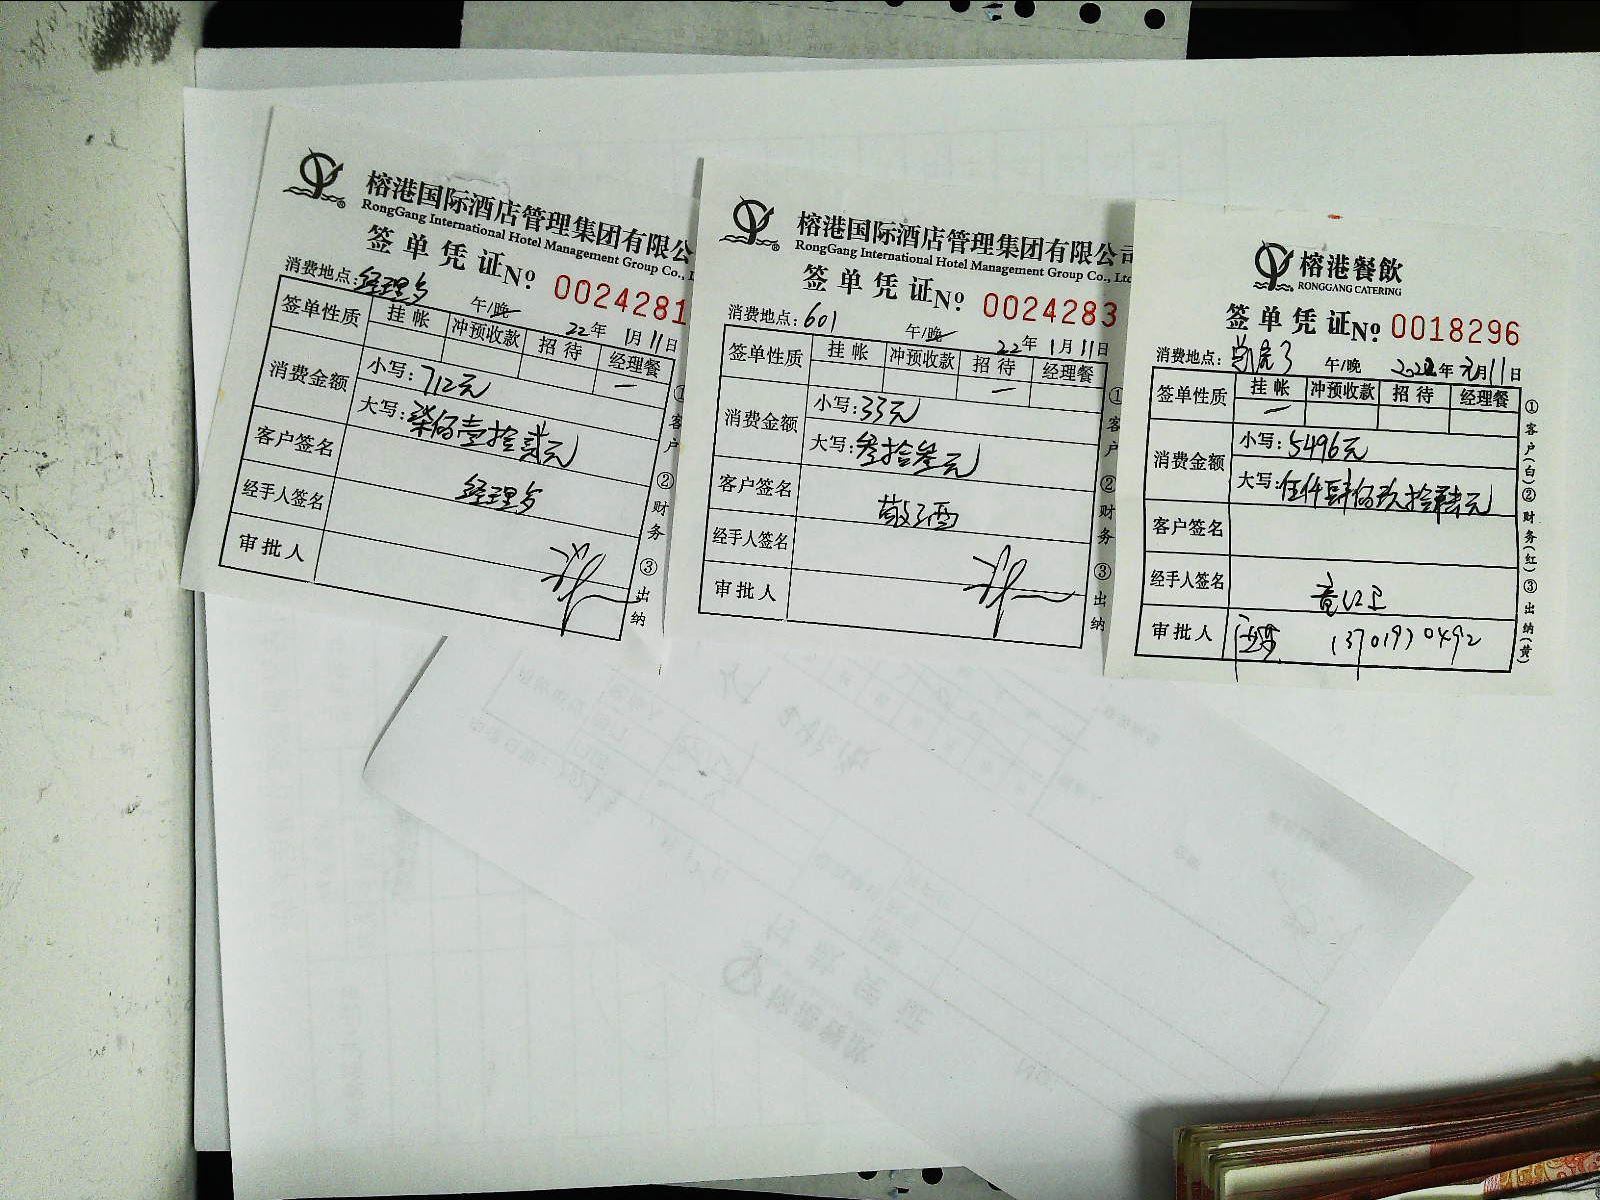 榕港国际酒店管理集团有限公
RongGang International Hotel Management Group Co.,
签单凭证 No. 0024281
消费地点:经理
午/晚 22年1月11日
签单性质 挂帐 冲预收款 招待 经理餐
消费金额 小写:712元
大写:柒佰壹拾贰元
客户签名
经手人签名 经理
审批人
①客户 ②财务 ③出纳
榕港国际酒店管理集团有限公司
RongGang International Hotel Management Group Co., Ltd
签单凭证 No. 0024283
消费地点:601 午/晚 22年1月11日
签单性质 挂帐 冲预收款 招待 经理餐
消费金额 小写:33元
大写:叁拾叁元
客户签名 敬酒
经手人签名
审批人
①客户 ②财务 ③出纳
榕港餐飲
RONGGANG CATERING
签单凭证 No. 0018296
消费地点: 午/晚 2022年元月11日
签单性质 挂帐 冲预收款 招待 经理餐
消费金额 小写:5496元
大写:伍仟肆佰玖拾陆元
客户签名
经手人签名
审批人
①客户(白)②财务(红)③出纳(黄)